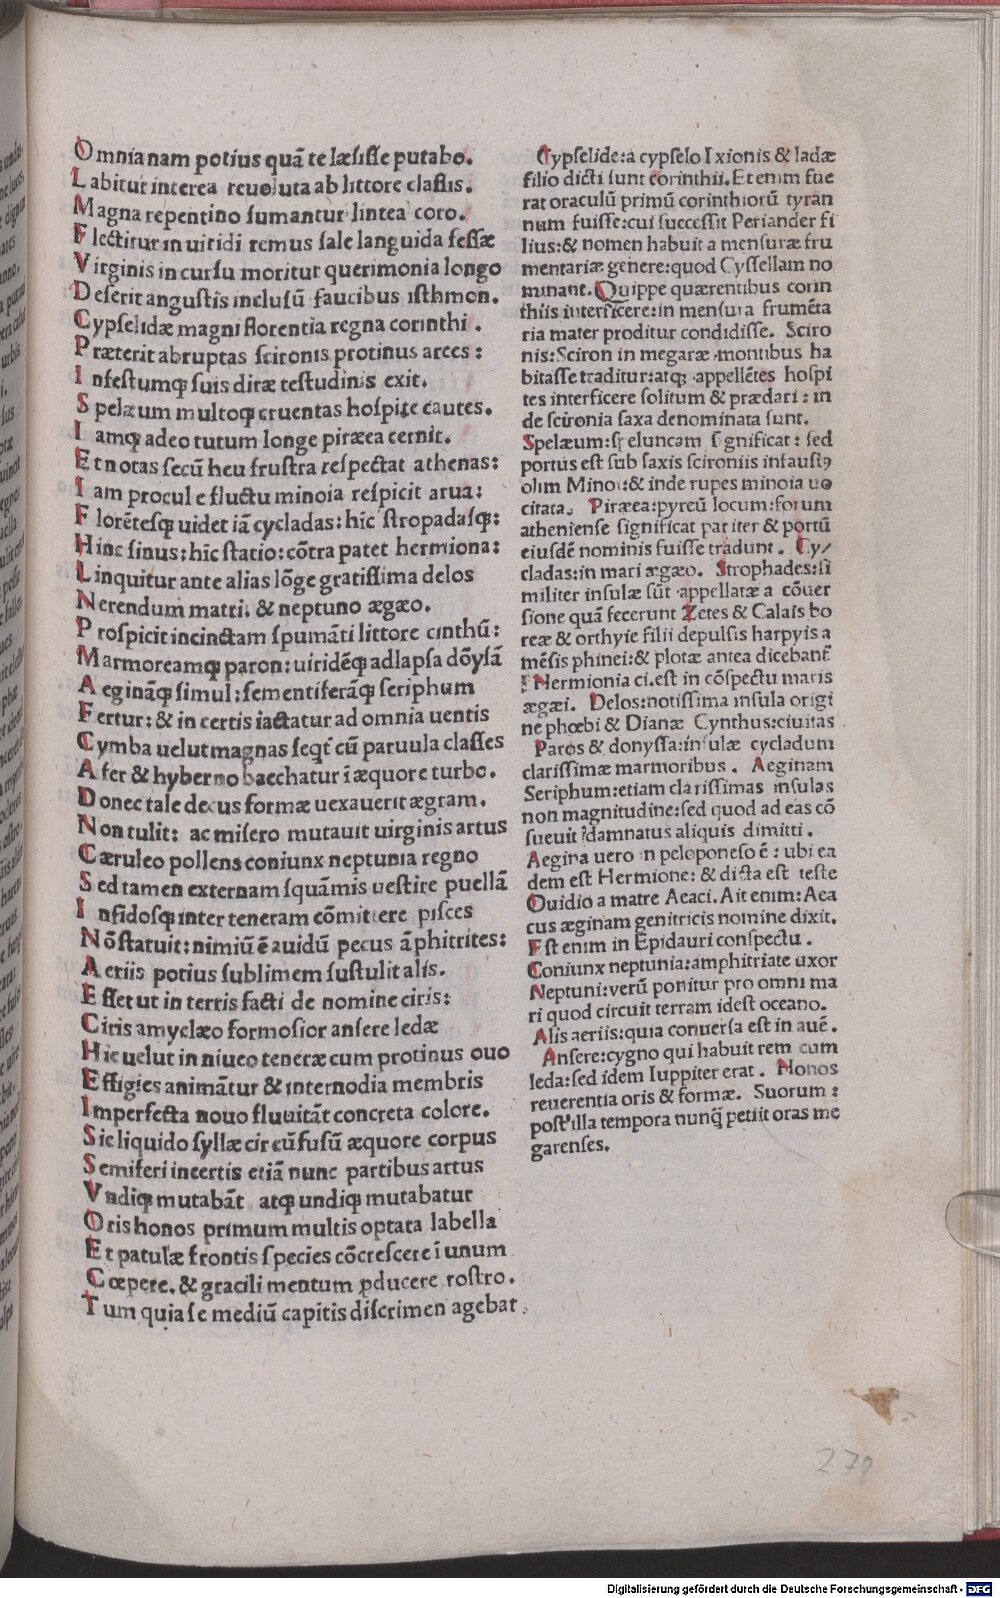 Omnia nam potius quā te læsisse putabo.
Labitur interea reuoluta ab littore classis.
Magna repentino sumantur lintea coro.
Flectitur in uiridi remus sale languida fessæ
Virginis in cursu moritur querimonia longo
Deserit angustis inclusū faucibus isthmon.
Cypselidæ magni florentia regna corinthi.
Præterit abruptas scironis protinus arces:
Infestumq; suis diræ testudinis exit.
Spelæum multoq; cruentas hospite cautes.
Iamq; adeo tutum longe piræea cernit.
Et notas secū heu frustra respectat athenas:
Iam procul e fluctu minoia respicit arua:
Florētesq; uidet iā cycladas: hīc stropadasq;:
Hinc sinus: hīc statio: cōtra patet hermiona:
Linquitur ante alias lōge gratissima delos
Nerendum matri. & neptuno ægæo.
Prospicit incinctam spumāti littore cinthū:
Marmoreamq; paron: uiridēq; adlapsa dōysā
Aegināq; simul: sementiferāq; seriphum
Fertur: & in certis iactatur ad omnia uentis
Cymba uelut magnas seqt̄ cū paruula classes
Afer & hyberno bacchatur ī æquore turbo.
Donec tale decus formæ uexauerit ægram.
Non tulit: ac misero mutauit uirginis artus
Cæruleo pollens coniunx neptunia regno
Sed tamen externam squāmis uestire puellā
Infidosq; inter teneram cōmittere pisces
Nō statuit: nimiū ē auidū pecus āphitrites:
Aeriis potius sublimem sustulit alis.
Esset ut in terris facti de nomine ciris:
Ciris amyclæo formosior ansere ledæ
Hic uelut in niueo teneræ cum protinus ouo
Effigies animātur & internodia membris
Imperfecta nouo fluuitāt concreta colore.
Sic liquido syllæ circūfusū æquore corpus
Semiferi incertis etiā nunc partibus artus
Vndiq; mutabāt atq; undiq; mutabatur
Oris honos primum multis optata labella
Et patulæ frontis species cōcrescere ī unum
Cœpere. & gracili mentum ꝓducere rostro.
Tum qui a se mediū capitis discrimen agebat.
Cypselide: a cypselo Ixionis & Iadæ
filio dicti sunt corinthii. Et enim fue
rat oraculū primū corinthiorū tyran
num fuisse: cui successit Periander fi
lius: & nomen habuit a mensuræ fru
mentariæ genere: quod Cyssellam no
minant. Quippe quærentibus corin
thiis interficere: in mensura frumēta
ria mater proditur condidisse. Sciro
nis: Sciron in megaræ montibus ha
bitasse traditur: atq; appellētes hospi
tes interficere solitum & prædari: in
de scironia saxa denominata sunt.
Spelæum: speluncam significat: sed
portus est sub saxis scironiis infaustꝰ
olim Minoi: & inde rupes minoia uo
citata. Piræea: pyreū locum: forum
atheniense significat pariter & portū
eiusdē nominis fuisse tradunt. Cy/
cladas: in mari ægæo. Strophades: si
militer insulæ sūt appellatæ a cōuer
sione quā fecerunt Zetes & Calais bo
reæ & orthyie filii depulsis harpyis a
mēsis phinei: & plotæ antea dicebant̄
Hermionia ci. est in cōspectu maris
ægæi. Delos: notissima insula origi
ne phœbi & Dianæ Cynthus: ciuitas
Paros & donyssa: insulæ cycladum
clarissimæ marmoribus. Aeginam
Seriphum: etiam clarissimas insulas
non magnitudine: sed quod ad eas cō
sueuit damnatus aliquis dimitti.
Aegina uero in peloponeso ē: ubi ea
dem est Hermione: & dicta est teste
Ouidio a matre Aeaci. Ait enim: Aea
cus æginam genitricis nomine dixit.
Est enim in Epidauri conspectu.
Coniunx neptunia: amphitriate uxor
Neptuni: uerū ponitur pro omni ma
ri quod circuit terram idest oceano.
Alis aeriis: quia conuersa est in auē.
Ansere: cygno qui habuit rem cum
leda: sed idem Iuppiter erat. Honos
reuerentia oris & formæ. Suorum:
post illa tempora nunq̄ petiit oras me
garenses.
270
Digitalisierung gefördert durch die Deutsche Forschungsgemeinschaft - DFG